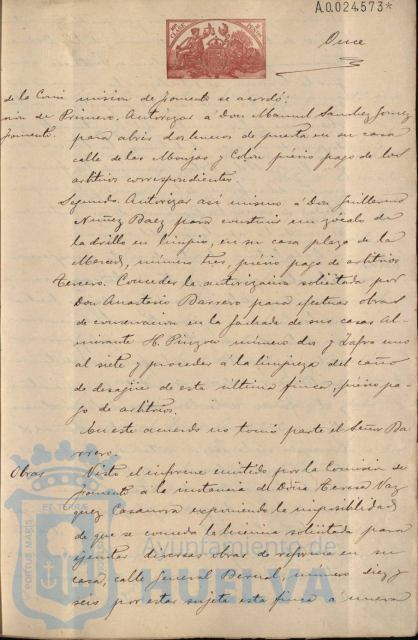 A.0.024.573*
Once
de la Comi mision de fomento se acordó:
sion de Primero. Autorizar á Don Manuel Sanchez Gomez
fomento. para abrir dos huecos de puerta en su casa
calle de las Monjas y Colon previo pago de los
arbitrios correspondientes.
Segundo. Autorizar asi mismo á Don Guillermo
Nuñez Baez para construir un zócalo de
ladrillo en limpio, en su casa plaza de la
Merced, número tres, previo pago de arbitrios
Tercero. Conceder la autorizacion solicitada por
Don Anastasio Barrero para efectuar obras
de conservacion en la fachada de sus casas Al-
mirante H. Pinzon número dos y Zafra uno
al siete y proceder á la limpieza del caño
de desagüe de esta última finca, previo pa-
go de arbitrios.
En este acuerdo no tomó parte el Señor Ba-
rrero.
Obras Visto el informe emitido por la Comision de
fomento á la instancia de Doña Teresa Vaz
quez Casanova exponiendo la imposibilidad
de que se conceda la licencia solicitada para
ejecutar diversas obras de reforma en su
casa, calle General Bernal, número diez y
seis por estar sujeta esta finca á nueva
PORTUS MARIS ET TERRAE
Ayuntamiento de
HUELVA